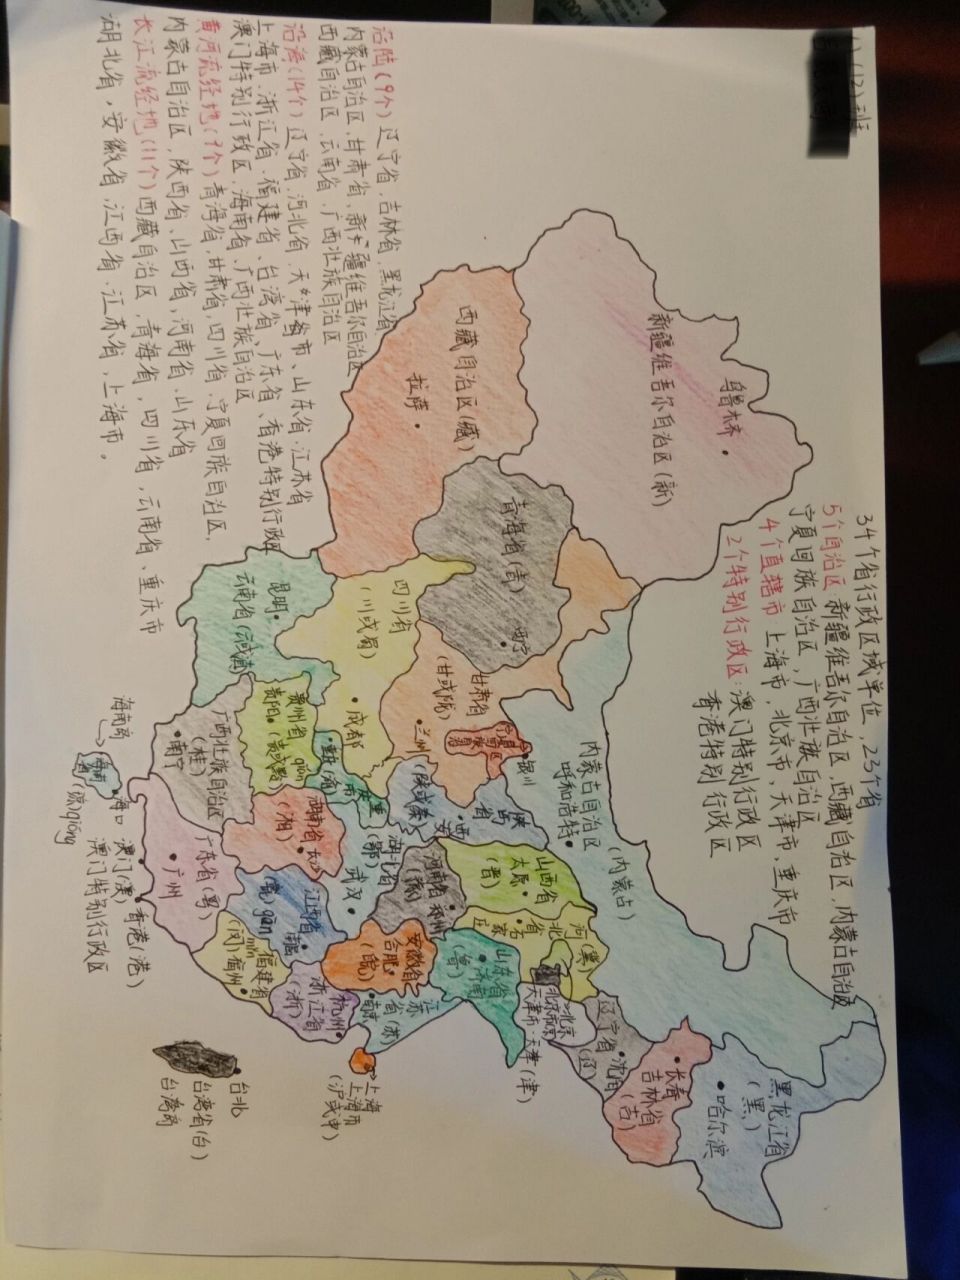 (12)班
34个省行政区域单位，23个省
5个自治区：新疆维吾尔自治区，西藏自治区，内蒙古自治区
宁夏回族自治区，广西壮族自治区
4个直辖市：上海市，北京市，天津市，重庆市
2个特别行政区：澳门特别行政区
香港特别行政区
乌鲁木齐
新疆维吾尔自治区(新)
西藏自治区(藏)
拉萨
青海省(青)
西宁
甘肃省
(甘或陇)
兰州
银川
内蒙古自治区
呼和浩特
(内蒙古)
黑龙江省
(黑)
哈尔滨
长春
吉林省
(吉)
辽宁省
沈阳
(辽)
北京
天津市·天津(津)
河
北
省
(冀)
石家庄
山西省
太原
(晋)
山东省
济南
(鲁)
陕西
省
西安
河南省
郑州
(豫)
四川省
(川或蜀)
成都
重庆
湖北省
(鄂)
武汉
安徽省
合肥
(皖)
江苏
省(苏)
南京
上海
上海市
(沪或申)
昆明
云南省
贵州省
贵阳
qián
湖南省
(湘)
江西省
南昌
gàn
浙江省
(浙)
杭州
福建省
(闽)
mǐn
福州
广西壮族自治区
(桂)
南宁
广东省(粤)
广州
台北
台湾省(台)
台湾岛
海南岛
海口
(琼)qióng
澳门(澳)
香港(港)
澳门特别行政区
沿陆(9个)辽宁省，吉林省，黑龙江省
内蒙古自治区，甘肃省，新疆维吾尔自治区
西藏自治区，云南省，广西壮族自治区
沿海(14个)辽宁省，河北省，天津市、山东省，江苏省
上海市，浙江省，福建省、台湾省、广东省、香港特别行政区
澳门特别行政区，海南省，广西壮族自治区
黄河流经地(7个)青海省，甘肃省，四川省，宁夏回族自治区，
内蒙古自治区，陕西省、山西省，河南省，山东省
长江流经地(11个)西藏自治区，青海省，四川省，云南省、重庆市
湖北省，安徽省，江西省，江苏省，上海市。